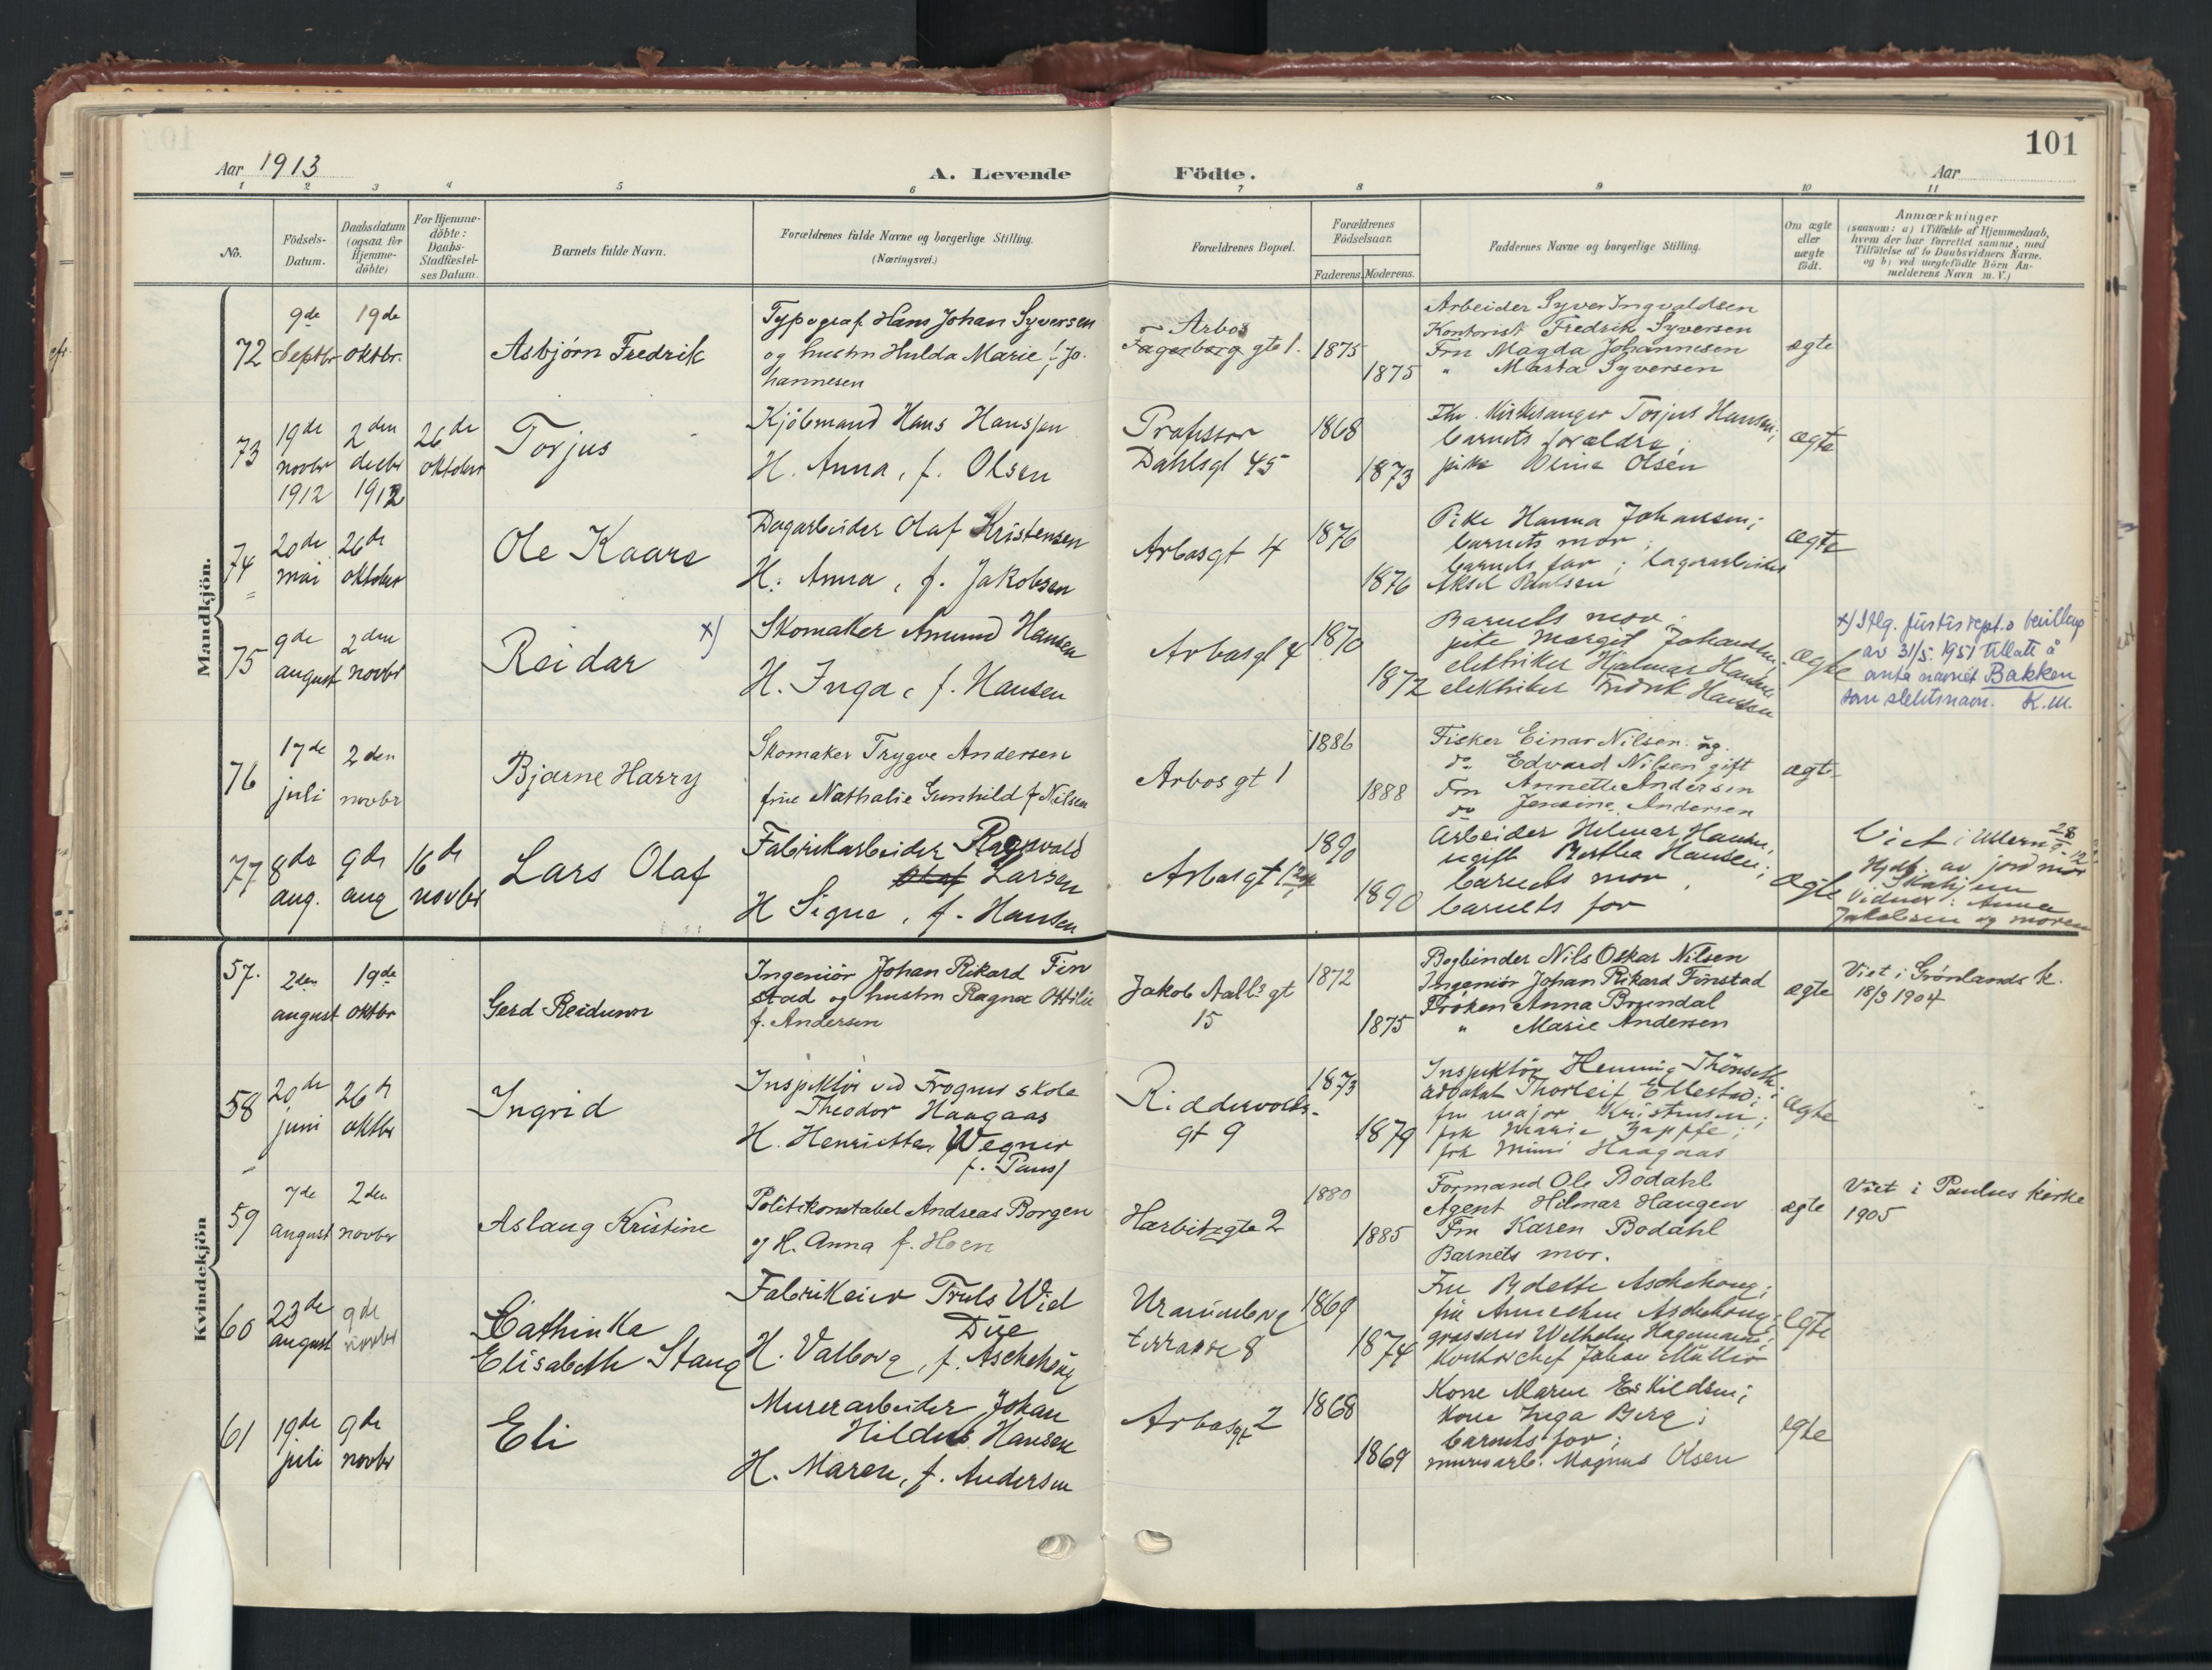 101
Aar 1913
A. Levende Födte.
Aar
1 2 3 4 5 6 7 8 9 10 11
No.
Födsels-
Datum.
Daabsdatum
(ogsaa for
Hjemme-
döbte)
For Hjemme-
döbte:
Daabs-
Stadfæstel-
ses Datum.
Barnets fulde Navn.
Forældrenes fulde Navne og borgerlige Stilling.
(Næringsvei.)
Forældrenes Bopæl.
Forældrenes
Födselsaar.
Faderens. Moderens.
Faddernes Navne og borgerlige Stilling.
Om ægte
eller
uægte
födt.
Anmærkninger
(saasom: a) i Tilfælde af Hjemmedaab,
hvem der har forrettet samme, med
Tilföielse af to Daabsvidners Navne.
og b) ved uægtefödte Börn An-
melderens Navn m. V.)
Mandkjön.
72
9de
Septbr
19de
oktbr.
Asbjørn Fredrik
Typograf Hans Johan Syversen
og hustru Hulda Marie f. Jo-
hannesen
Arbos
Fagerborg gte 1.
1875
1875
Arbeider Syver Ingvaldsen
Kontorist Fredrik Syversen
Fru Magda Johannesen
" Marta Syversen
ægte
73
19de
novbr
1912
2den
decbr
1912
26de
oktober
Torjus
Kjöbmand Hans Hanssen
H. Anna, f. Olsen
Professor
Dahlsgt 45
1868
1873
Fhv. Kirkesanger Torjus Hansen;
barnets forældre;
pike Oline Olsen
ægte
74
20de
mai
26de
oktober
Ole Kaare
Dagarbeider Olaf Kristensen
H. Anna, f. Jakobsen
Arbosgt 4
1876
1876
Pike Hanna Johansen;
barnets mor;
barnets far; lagerarbeider
Aksel Paulsen
ægte
75
9de
august
2den
novbr
Reidar x)
Skomaker Amund Hansen
H. Inga, f. Hansen
Arbosgt 4
1870
1872
Barnets mor;
pike Margit Johansen;
elektriker Hjalmar Hansen;
elektriker Fredrik Hansen
ægte
x) Iflg. justisdept.s bevilling
av 31/5 1951 tillatt å
anta navnet Bakken
som slektsnavn. K.M.
76
17de
juli
2den
novbr
Bjarne Harry
Skomaker Trygve Andersen
frue Nathalie Gunhild f Nilsen
Arbos gt 1
1886
1888
Fisker Einar Nilsen ug.
do Edvard Nilsen gift
Fru Annette Andersen
do Jensine Andersen
ægte
77
8de
aug.
9de
aug
16de
novbr
Lars Olaf
Fabrikarbeider Ragnvald
Olaf Larsen
H Signe, f. Hansen
Arbosgt 1
1890
1890
Arbeider Hilmar Hansen,
ugift Bertha Hansen;
barnets mor,
barnets far
ægte
Viet i Ullern 28/9 12
Hjdbt. av jordmor
Skahjem
Vidner: Anna
Jakobsen og moren
Kvindekjön
57.
2den
august
19de
oktbr
Gerd Reidunn
Ingeniør Johan Rikard Fin
stad og hustru Ragna Ottilie
f. Andersen
Jakob Aalls gt
15
1872
1875
Bogbinder Nils Oskar Nilsen
Ingeniør Johan Rikard Finstad
Frøken Anna Brundal
" Marie Andersen
ægte
Viet i Grønlands k.
18/3 1904
58
20de
juni
26de
oktbr
Ingrid
Inspektør ved Frogner skole
Theodor Haagaas
H. Henriette Wegner
f. Paus
Riddervolds-
gt 9
1873
1879
Inspektør Henning Thönseth;
advokat Thorleif Ellestad;
fru major Kristensen;
frk Marie Zapffe;
frk Mimi Haagaas
ægte
59
7de
august
2den
novbr
Aslaug Kristine
Politikonstabel Andreas Borgen
og H. Anna f. Hoen
Harbitzgte 2
1880
1885
Formand Ole Bodahl
Agent Hilmar Haugen
Fru Karen Bodahl
Barnets mor.
ægte
Viet i Paulus kirke
1905
60
23de
august
9de
novbr
Cathinka
Elisabeth Stang
Fabrikeier Truls Wiel
Due
H. Valborg, f. Aschehoug
Uranienborg
terrasse 8
1869
1874
Fru Bolette Aschehoug;
frk Annechen Aschehoug;
grosserer Wilhelm Hagemann;
kontorchef Johan Müller
ægte
61
19de
juli
9de
novbr
Eli
Murerarbeider Johan
Hildus Hansen
H. Maren, f. Andersen
Arbosgt 2
1868
1869
Kone Maren Eskildsen;
Kone Inga Berg;
barnets far;
murerarb. Magnus Olsen
ægte